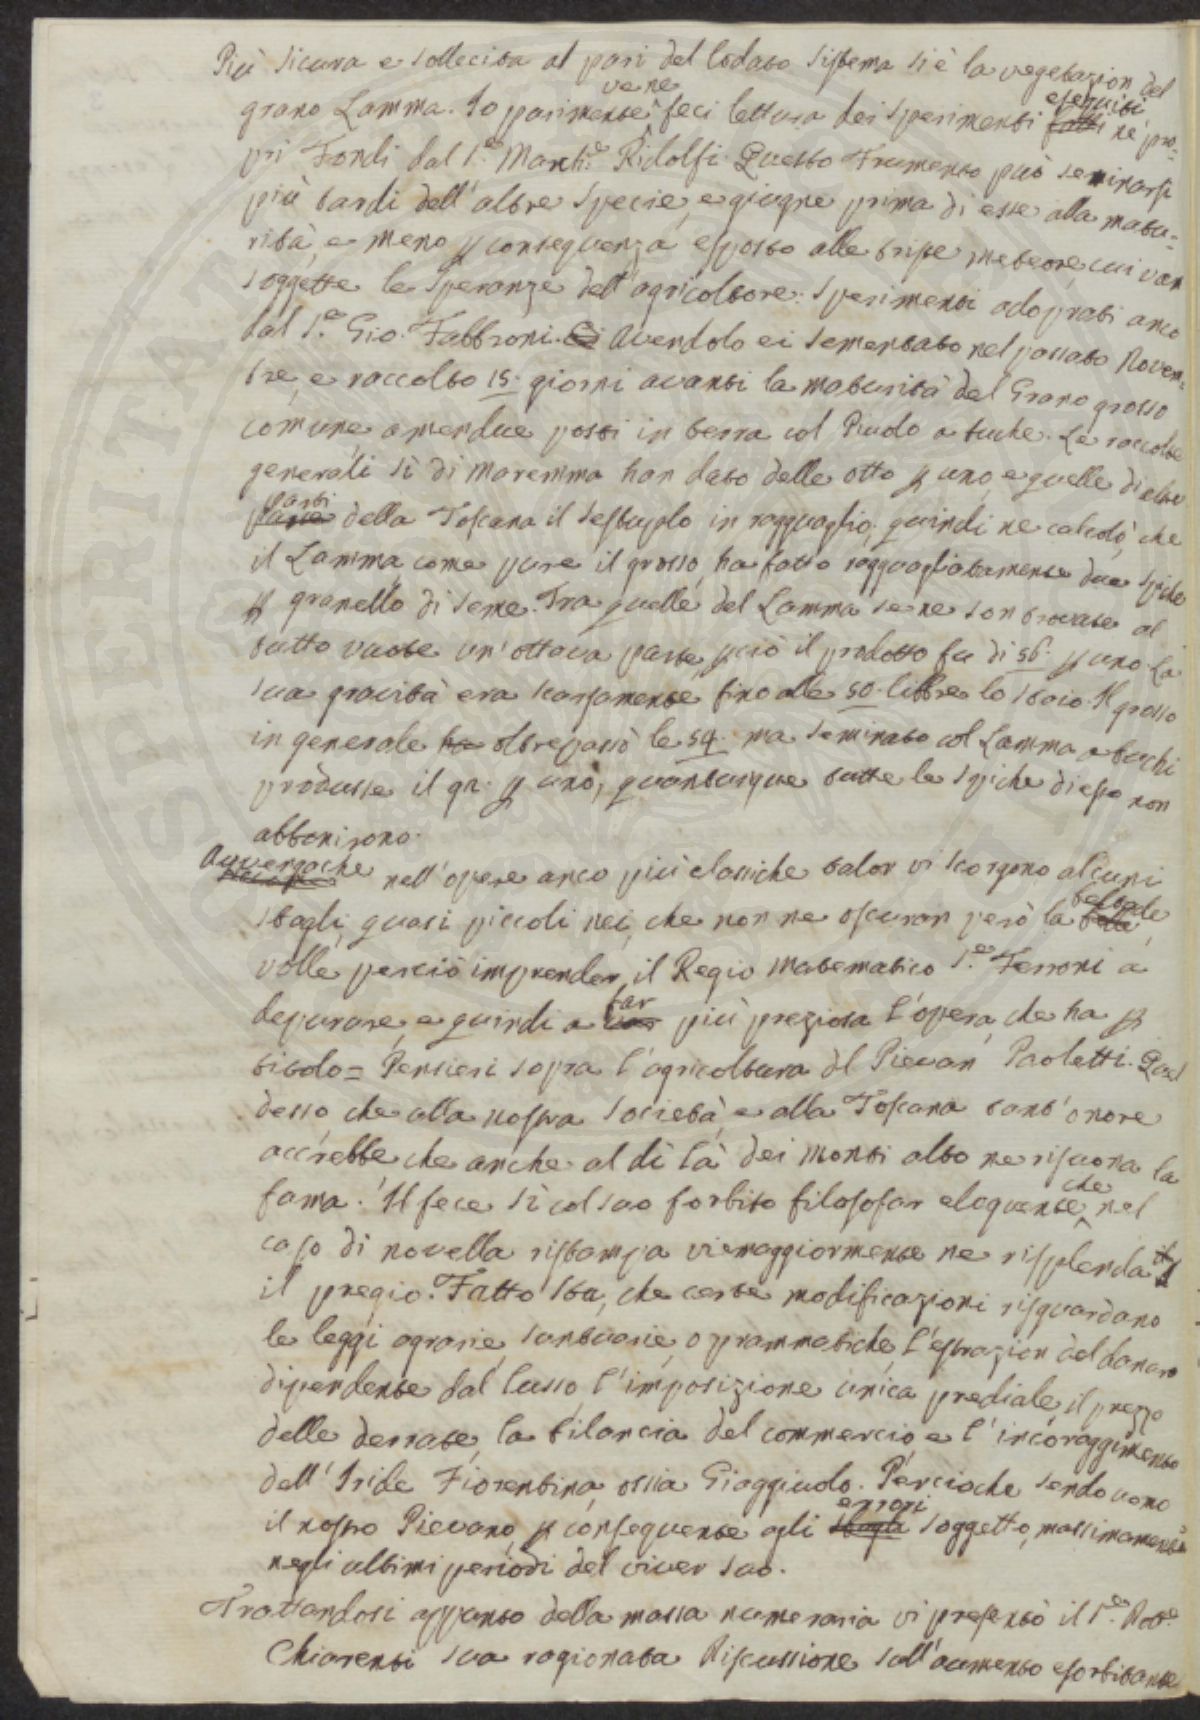 Più sicura e sollecita al pari del lodato sistema si è la vegetazion del
grano Lamma. Io parimente ve ne feci lettura dei sperimenti fatti eseguiti ne' pro=
pri Fondi dal S.e March.e Ridolfi. Questo Frumento può seminarsi
più tardi dell'altre specie, e giugne prima di esse alla matu=
rità, e meno p conseguenza esposto alle triste meteore cui van
soggette le speranze dell'agricoltore: sperimenti adoprati anco
dal S.e Gio. Fabbroni. Avendolo ei sementato nel passato Novem=
bre, e raccolto 15. giorni avanti la maturità del Grano grosso
comune amendue posti in terra col Piudo a buche. Le raccolte
generali sì di maremma han dato delle otto p uno, e quelle di altre
parte parti della Toscana il sestuplo in ragguaglio, quindi ne calcolò, che
il Lamma come pure il grosso, ha fatto ragguagliatamente due spighe
p granello di seme. Tra quelle del Lamma se ne son trovate al
tutto vuote un'ottava parte, pciò il prodotto fu di 56. p uno. La
sua gravità era scarsamente fino alle 50. libbre lo staio. Il grosso
in generale ha oltrepassò le 54. ma seminato col Lamma a buchi
produsse il 91. p uno, quantunque tutte le spiche di esso non
abbonirono.
Avvegnache nell'opere anco più classiche talor vi scorgono alcuni
sbagli, quasi piccoli nei, che non ne oscuran però la belle beltade,
volle perciò imprender, il Regio Matematico S.e Ferroni a
depurare, e quindi a far più preziosa l'opera, che ha p
titolo = Pensieri sopra l'agricoltura del Pievan Paoletti. Quel
desso, che alla nostra Società, e alla Toscana tant'onore
accrebbe che anche al di là dei monti alto ne risuona la
fama. Il fece sì col suo forbito filosofar eloquente, che nel
caso di novella ristampa viemaggiormente ne risplenda il
il pregio. Fatto sta, che certe modificazioni risguardano
le leggi agrarie suntuarie, o prammatiche, l'estrazion del danaro
dipendente dal lusso, l'imposizione unica prediale, il prezzo
delle derrate, la bilancia del commercio, e l'incoraggimento
dell'Iride Fiorentina, ossia Giaggiuolo. Percioche sendo uomo
il nostro Pievano, p conseguente agli sbagli errori soggetto, massimamente
negli ultimi periodi del viver suo.
Trattandosi appunto della massa numeraria vi presentò il S.e Dott.e
Chiarenti sua ragionata Discussione sull'aumento esorbitante